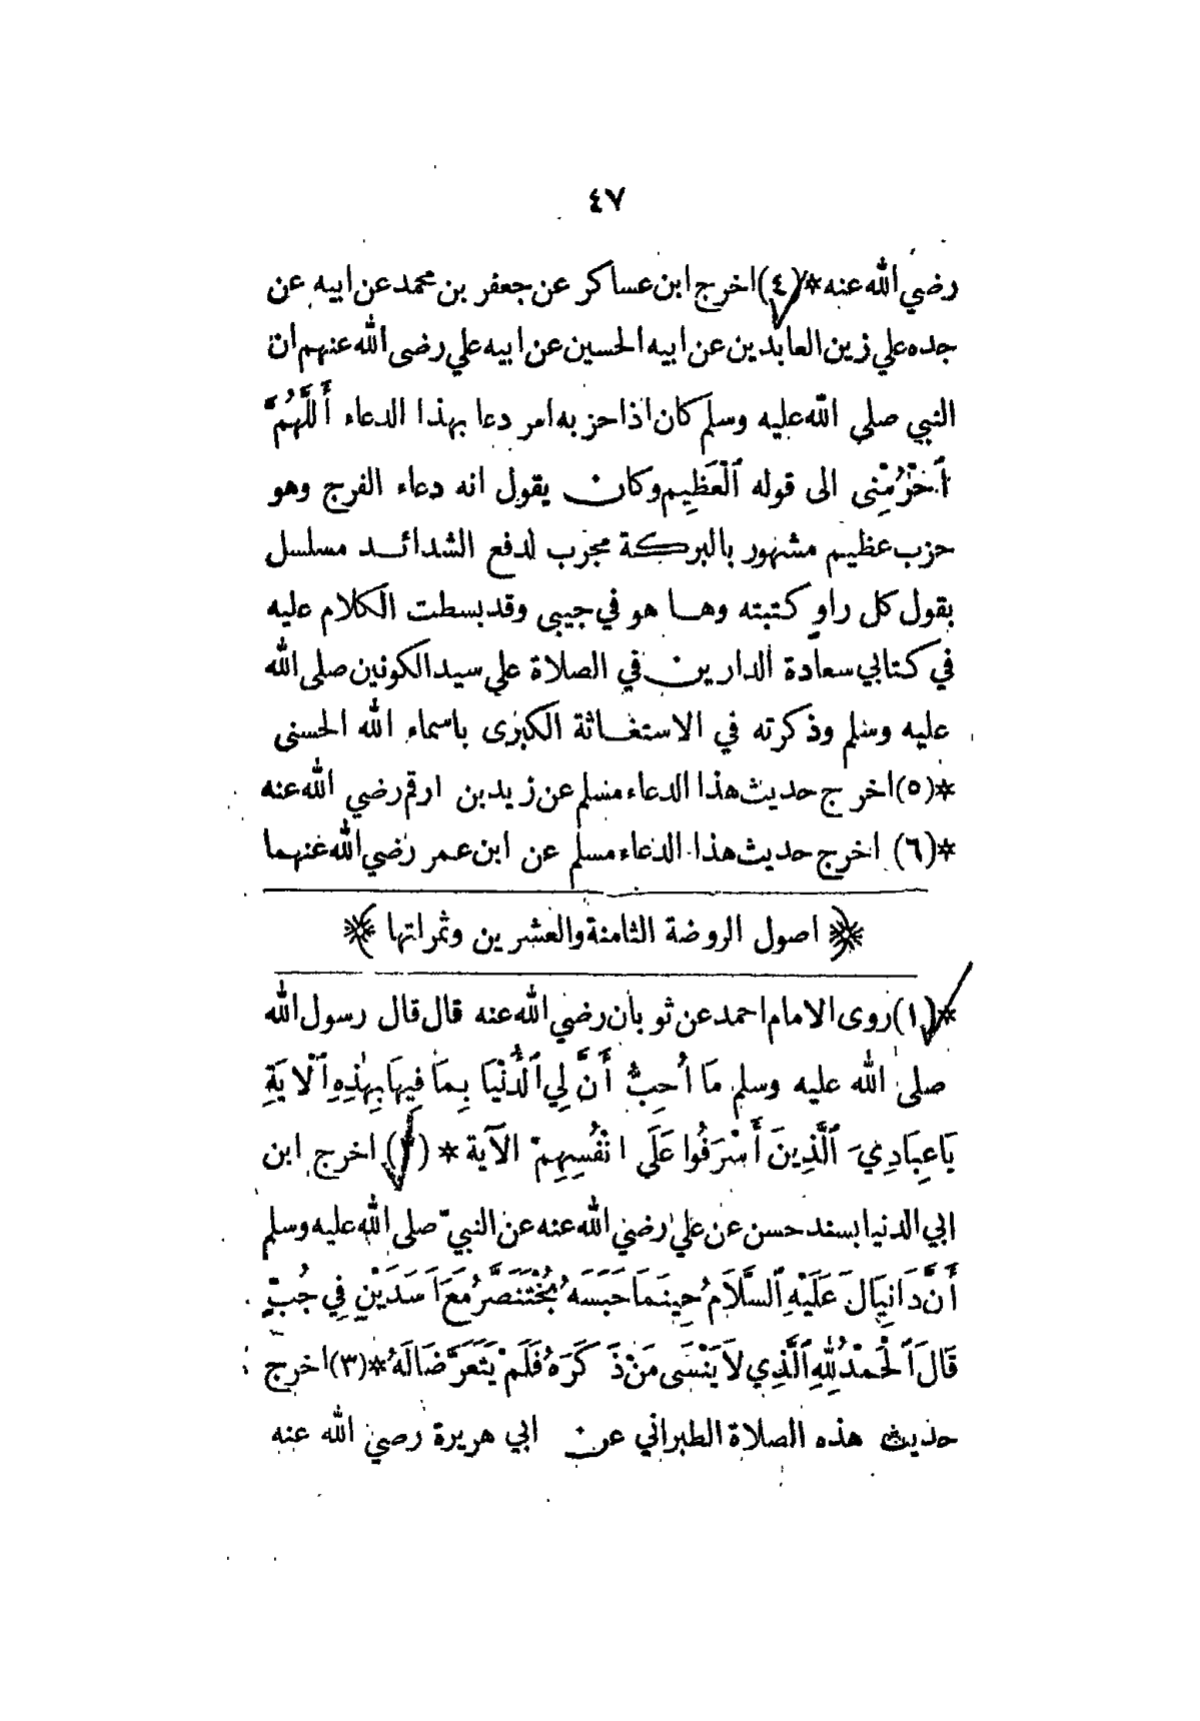 ٤٧
رضي الله عنه *(٤) اخرج ابن عساكر عن جعفر بن محمد عن ابيه عن
جده علي زين العابدين عن ابيه الحسين عن ابيه علي رضى الله عنهم ان
النبي صلى الله عليه وسلم كان اذا حزبه امر دعا بهذا الدعاء أَللَّهُمَّ
ٱحْرُسْنِى الى قوله ٱلْعَظِيمِ وكان يقول انه دعاء الفرج وهو
حزب عظيم مشهور بالبركة مجرب لدفع الشدائد مسلسل
بقول كل راوٍ كتبته وها هو في جيبى وقد بسطت الكلام عليه
في كتابي سعادة الدارين في الصلاة على سيد الكونين صلى الله
عليه وسلم وذكرته في الاستغاثة الكبرى باسماء الله الحسنى
*(٥) اخرج حديث هذا الدعاء مسلم عن زيد بن ارقم رضي الله عنه
*(٦) اخرج حديث هذا الدعاء مسلم عن ابن عمر رضي الله عنهما
﴿ اصول الروضة الثامنة والعشرين وثمراتها ﴾
*(١) روى الامام احمد عن ثوبان رضي الله عنه قال قال رسول الله
صلى الله عليه وسلم مَا أُحِبُّ أَنَّ لِي ٱلدُّنْيَا بِمَا فِيهَا بِهٰذِهِ ٱلْآيَةِ
يَاعِبَادِيَ ٱلَّذِينَ أَسْرَفُوا عَلَى انْفُسِهِمْ الآية *(٢) اخرج ابن
ابي الدنيا بسند حسن عن علي رضي الله عنه عن النبيّ صلى الله عليه وسلم
أَنَّ دَانِيَالَ عَلَيْهِ ٱلسَّلَامُ حِينَمَا حَبَسَهُ بُخْتَنَصَّرُ مَعَ اَسَدَيْنِ فِي جُبٍّ
قَالَ ٱلْحَمْدُ لِلهِ ٱلَّذِي لاَ يَنْسَى مَنْ ذَكَرَهُ فَلَمْ يَتَعَرَّضَا لَهُ *(٣) اخرج
حديث هذه الصلاة الطبراني عن ابي هريرة رضي الله عنه